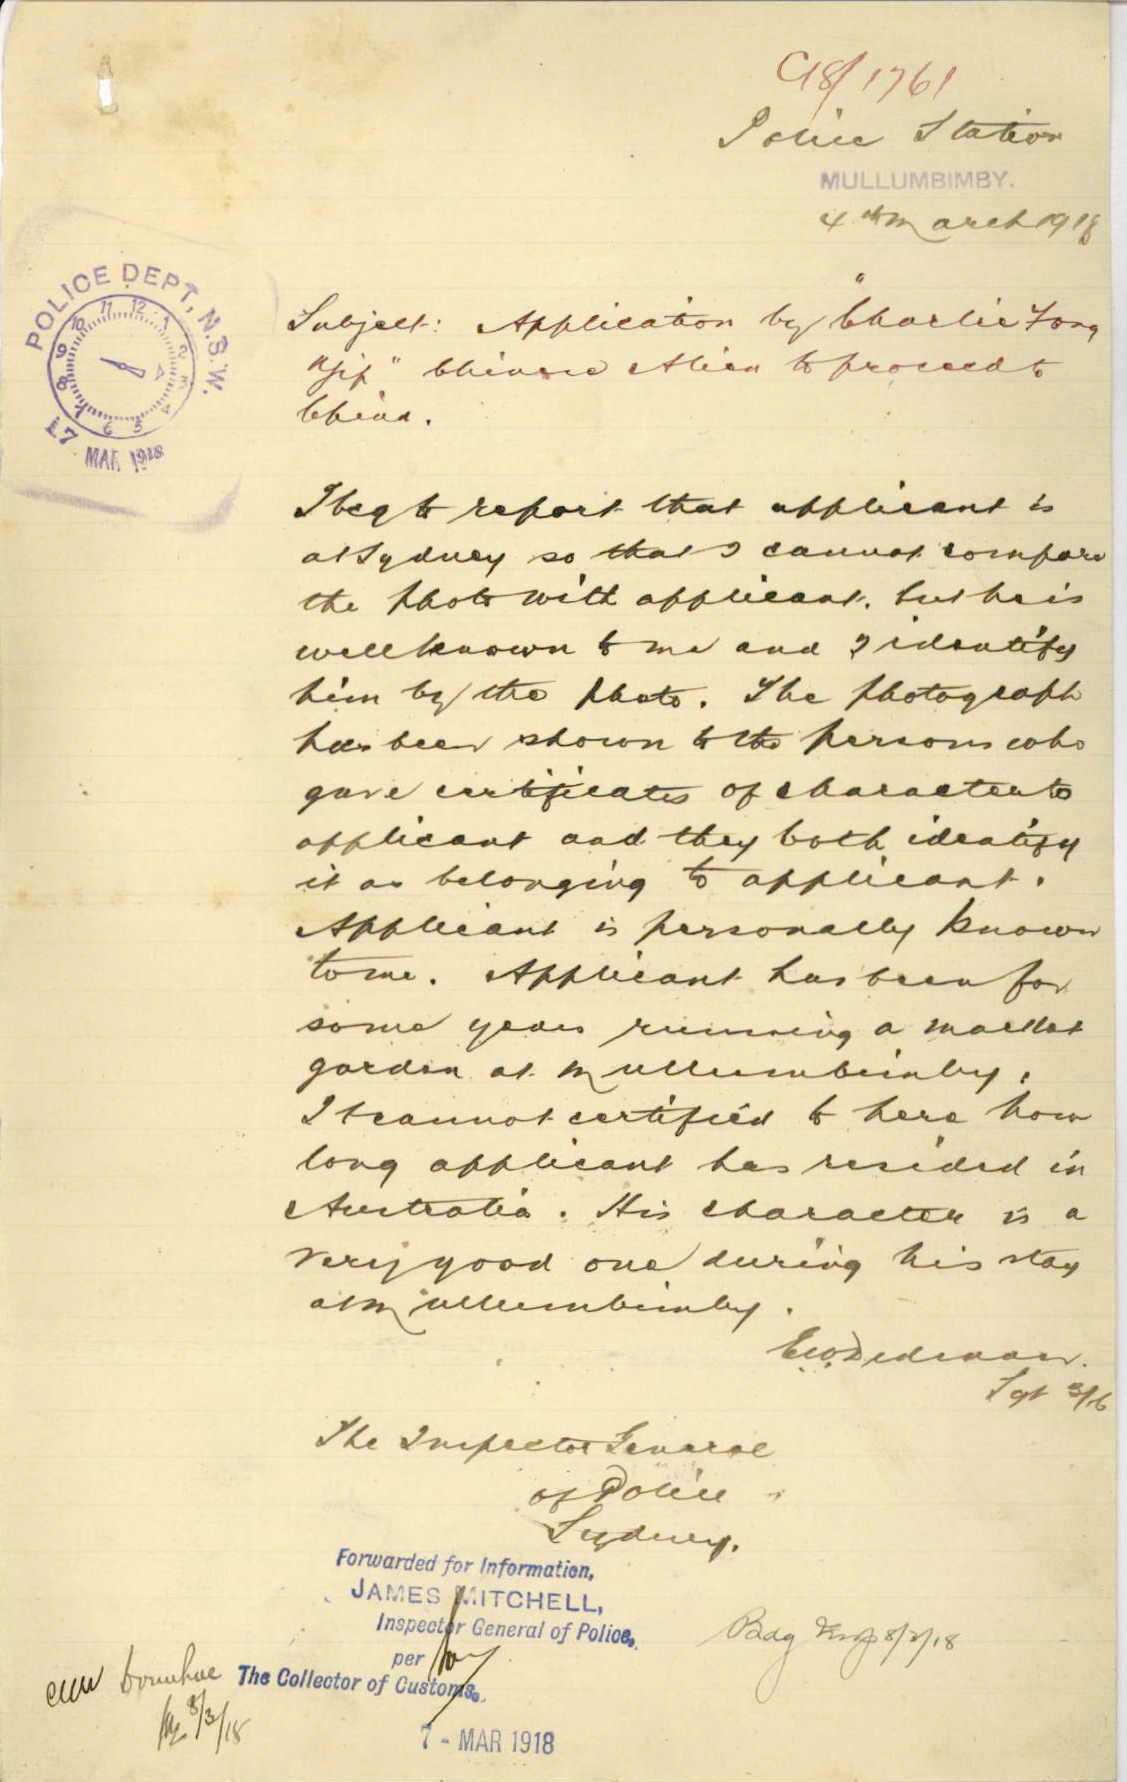 C18/1761
Police Station
MULLUMBIMBY.
4th March 1918
POLICE DEPT, N.S.W.
7 MAR 1918
Subject: Application by "Charlie Fong
"Yip" Chinese Alien to proceed to
China.
I beg to report that applicant is
at Sydney so that I cannot compare
the photo with applicant. but he is
well known to me and I identify
him by the photo. The photograph
has been shown to the persons who
gave certificates of character to
applicant and they both identify
it as belonging to applicant.
Applicant is personally known
to me. Applicant has been for
some years running a market
garden at Mullumbimby.
It cannot certified to here how
long applicant has resided in
Australia. His character is a
very good one during his stay
at Mullumbimby.
Sgt 3/c
The Inspector General
of Police
Sydney.
Forwarded for Information,
JAMES MITCHELL,
Inspector General of Police.
per
The Collector of Customs.
7 - MAR 1918
Donohue
8/3/18
Bdg Insp 8/3/18